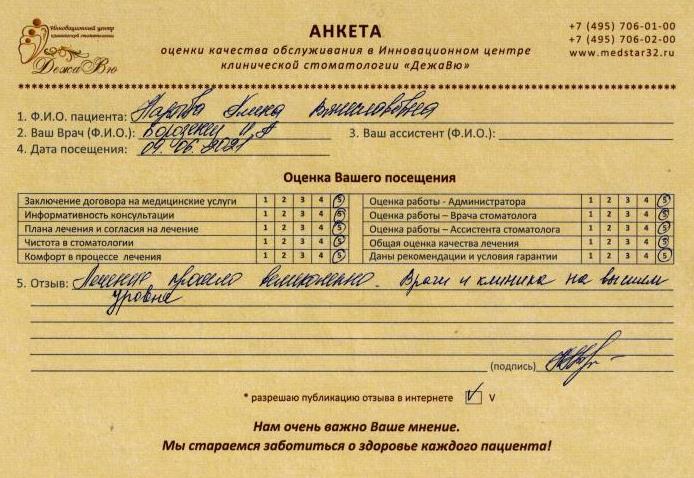 Инновационный центр
клинической стоматологии
ДежаВю
АНКЕТА
оценки качества обслуживания в Инновационном центре
клинической стоматологии «ДежаВю»
+7 (495) 706-01-00
+7 (495) 706-02-00
www.medstar32.ru
1. Ф.И.О. пациента:
2. Ваш Врач (Ф.И.О.): 3. Ваш ассистент (Ф.И.О.):
4. Дата посещения: 09.06.2021
Оценка Вашего посещения
Заключение договора на медицинские услуги 1 2 3 4 5
Информативность консультации 1 2 3 4 5
Плана лечения и согласия на лечение 1 2 3 4 5
Чистота в стоматологии 1 2 3 4 5
Комфорт в процессе лечения 1 2 3 4 5
Оценка работы - Администратора 1 2 3 4 5
Оценка работы – Врача стоматолога 1 2 3 4 5
Оценка работы – Ассистента стоматолога 1 2 3 4 5
Общая оценка качества лечения 1 2 3 4 5
Даны рекомендации и условия гарантии 1 2 3 4 5
5. Отзыв: Лечение прошло великолепно. Врачи и клиника на высшем
уровне
(подпись)
* разрешаю публикацию отзыва в интернете V
Нам очень важно Ваше мнение.
Мы стараемся заботиться о здоровье каждого пациента!